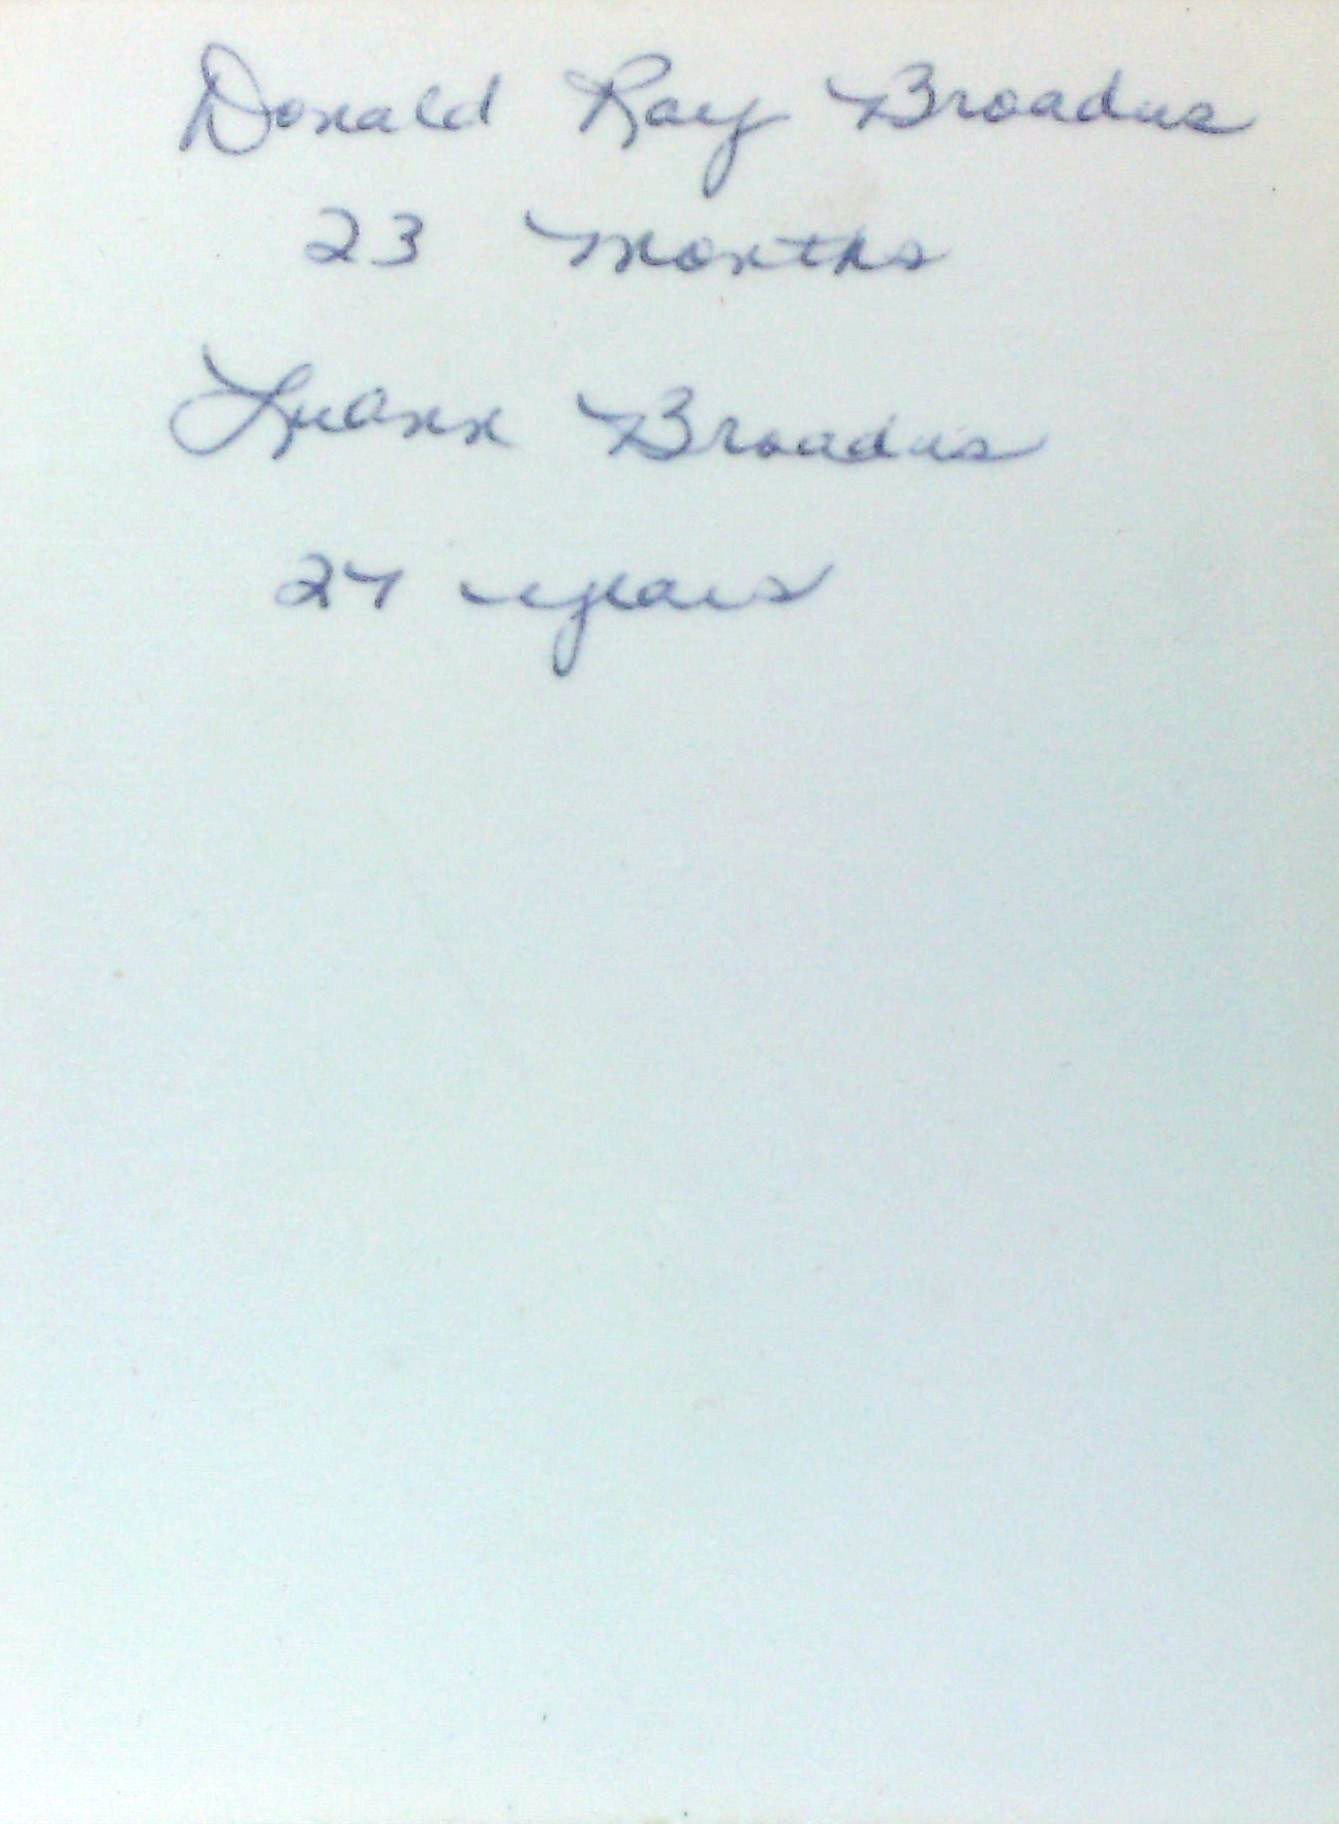 Donald Ray Broadus
23 Months
LuAnn Broadus
27 years